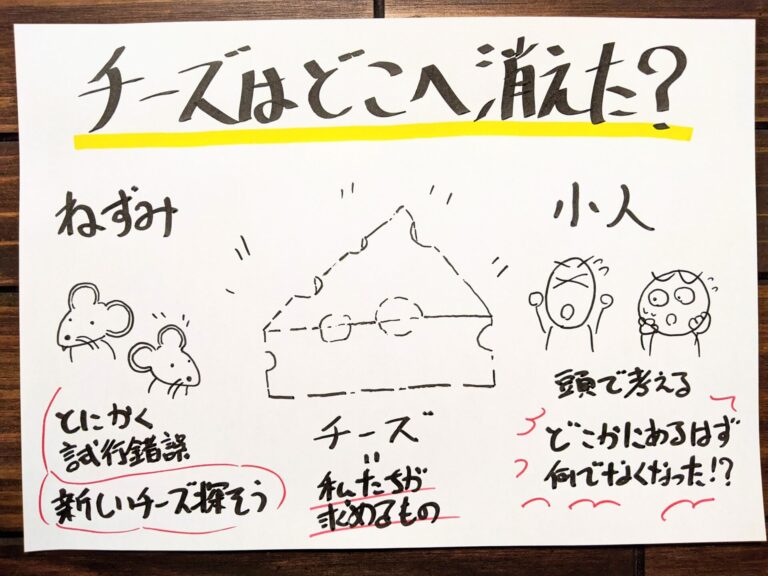 チーズはどこへ消えた?
ねずみ
とにかく
試行錯誤
新しいチーズ探そう
チーズ
=
私たちが
求めるもの
小人
頭で考える
どこかにあるはず
何でなくなった!?